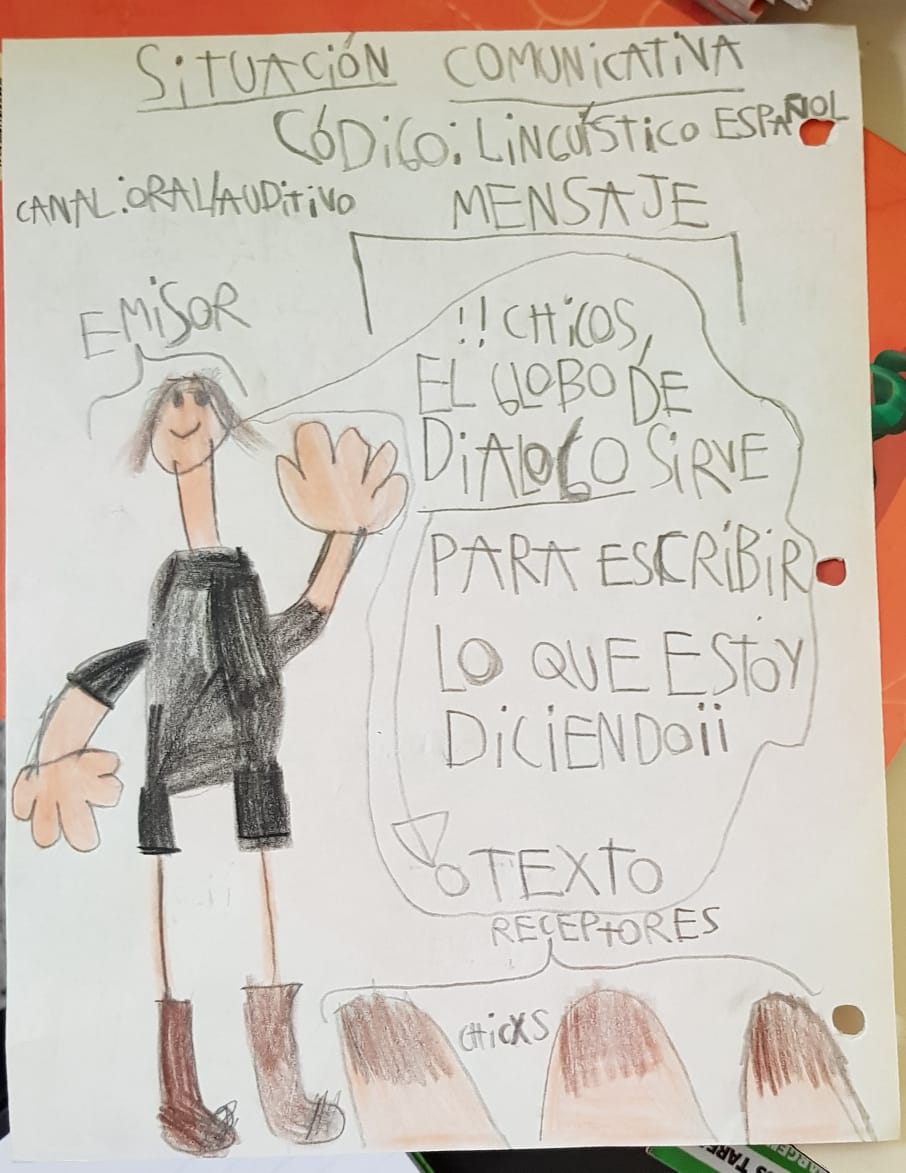 SITUACIÓN COMUNICATIVA
CÓDIGO: LINGUÍSTICO ESPAÑOL
CANAL: ORAL/AUDITIVO
MENSAJE
EMISOR
!! CHICOS,
EL GLOBO DE
DIALOGO SIRVE
PARA ESCRIBIR
LO QUE ESTOY
DICIENDO¡¡
O TEXTO
RECEPTORES
CHICXS